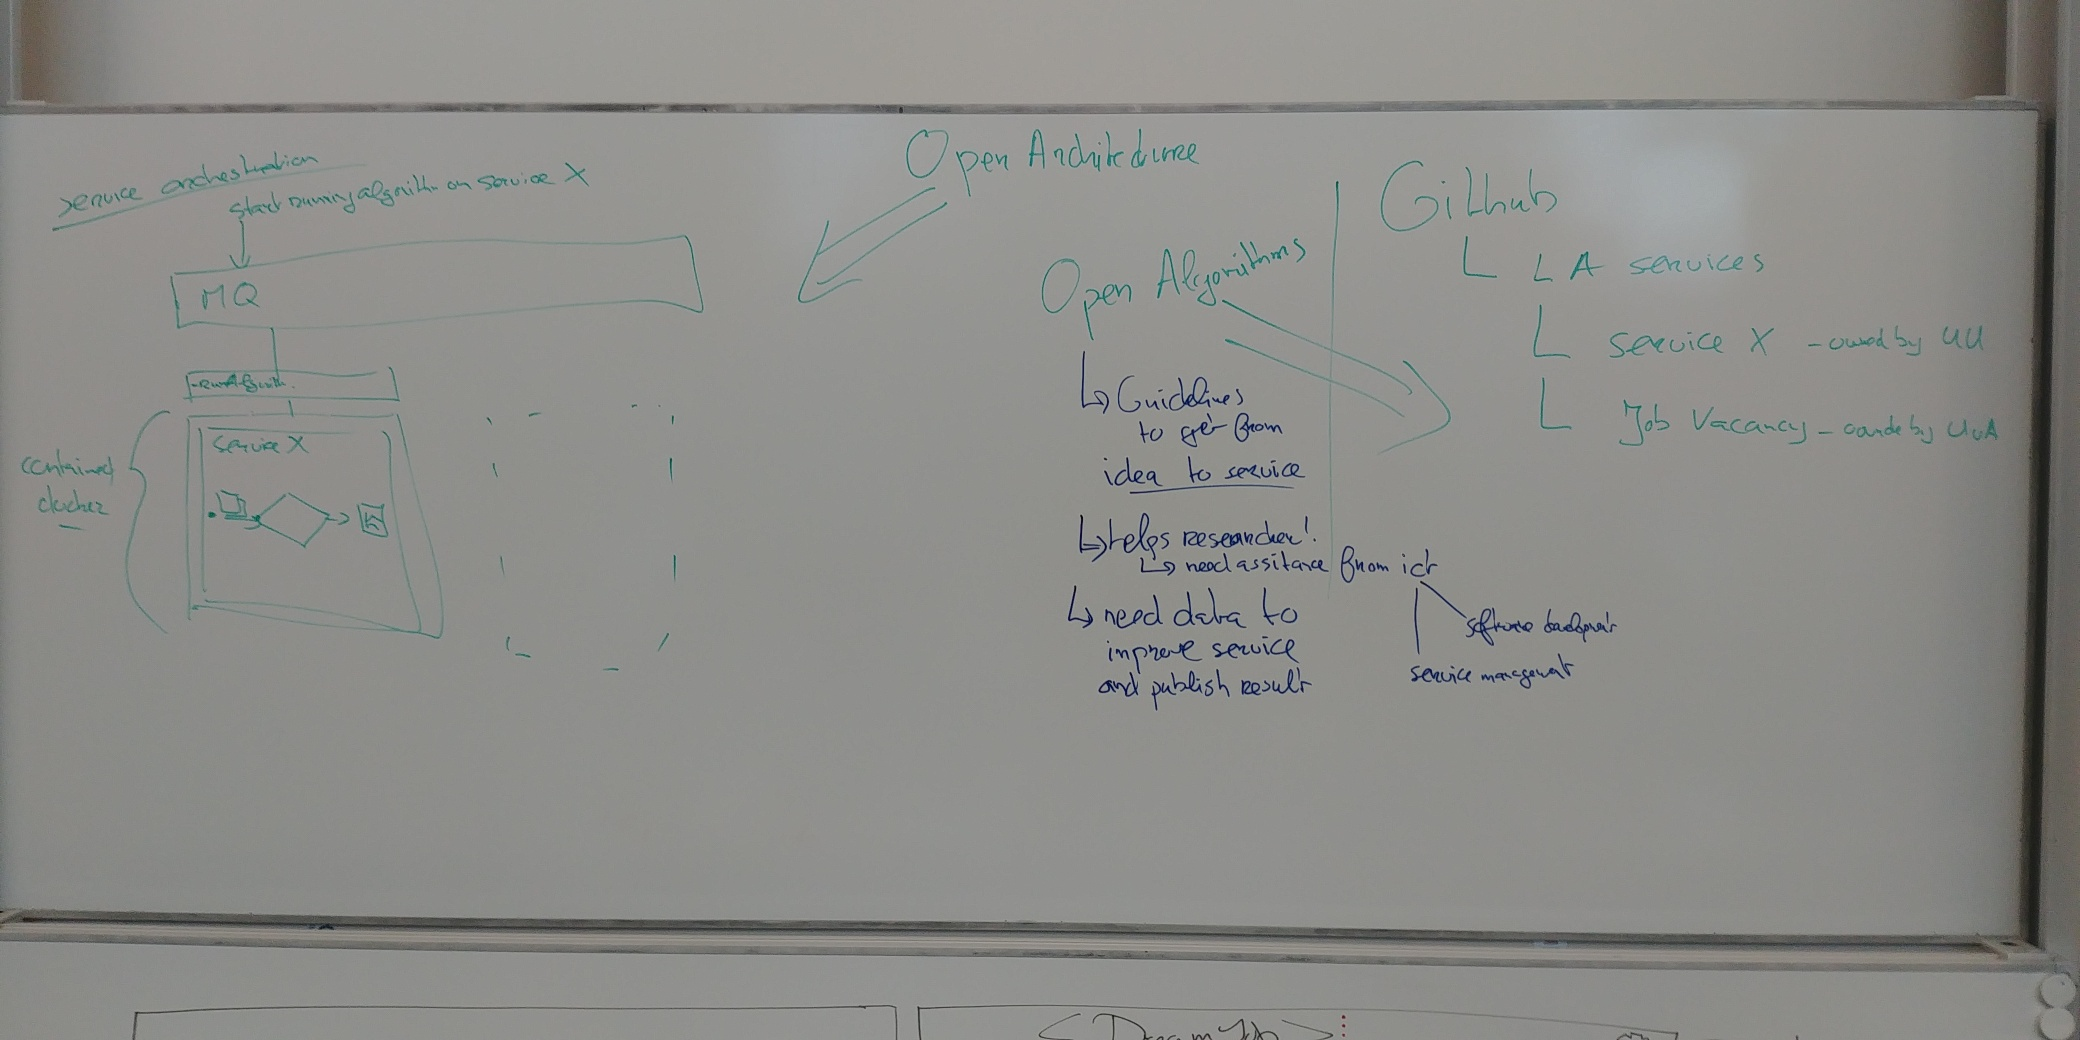 Service orchestration
Start running algorithm on service X
MQ
Service X
contained
docker
Open Architecture
Open Algorithms
Guidelines
to get from
idea to service
helps researcher!
need assitance from ict
software
service management
need data to
improve service
and publish result
Github
LA services
service X - owned by UU
Job Vacancy - by UvA